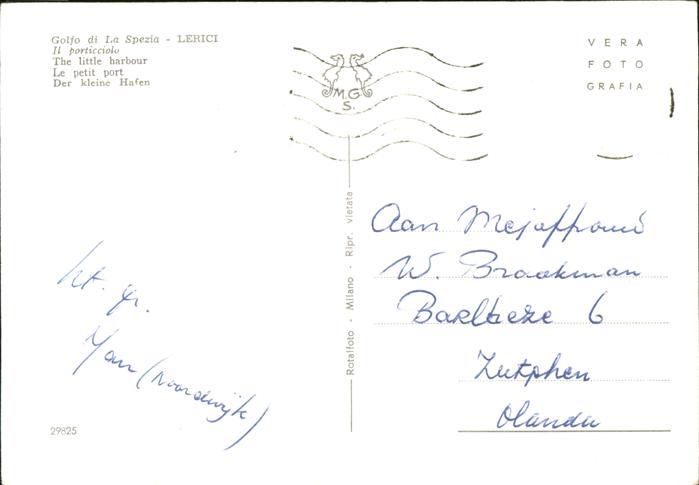 Golfo di La Spezia - LERICI
Il porticciolo
The little harbour
Le petit port
Der kleine Hafen
M.G.
S.
VERA
FOTO
GRAFIA
Rotalfoto - Milano - Ripr. vietata
Aan Mejuffrouw
W. Braakman
6
Zutphen
Olanda
ht. gr.
(Noordwijk)
29825